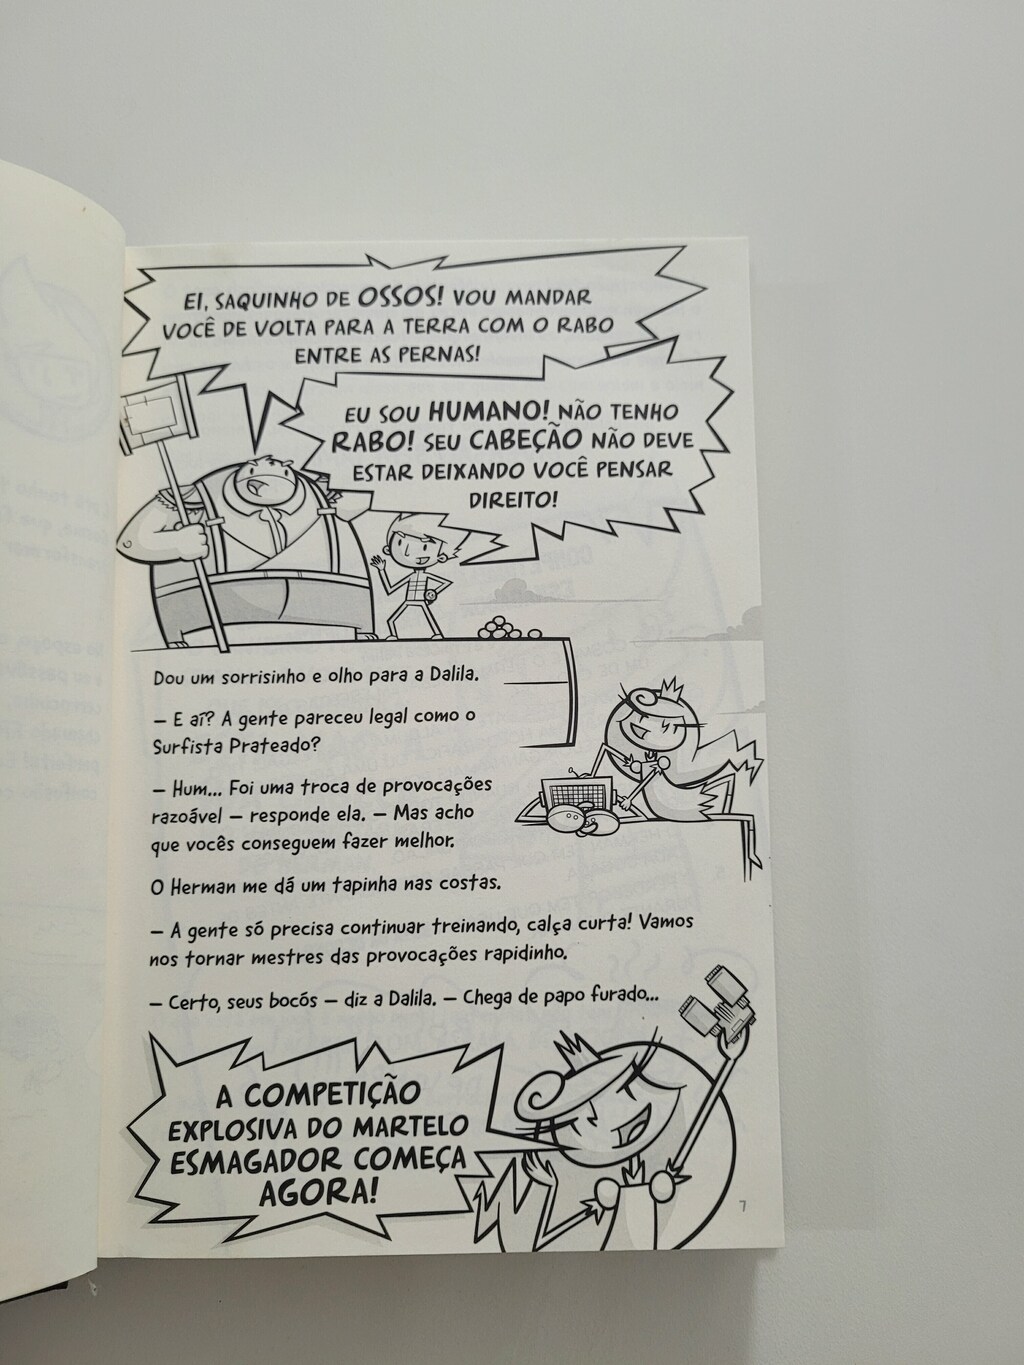 EI, SAQUINHO DE OSSOS! VOU MANDAR
VOCÊ DE VOLTA PARA A TERRA COM O RABO
ENTRE AS PERNAS!
EU SOU HUMANO! NÃO TENHO
RABO! SEU CABEÇÃO NÃO DEVE
ESTAR DEIXANDO VOCÊ PENSAR
DIREITO!
Dou um sorrisinho e olho para a Dalila.
– E aí? A gente pareceu legal como o
Surfista Prateado?
– Hum... Foi uma troca de provocações
razoável – responde ela. – Mas acho
que vocês conseguem fazer melhor.
O Herman me dá um tapinha nas costas.
– A gente só precisa continuar treinando, calça curta! Vamos
nos tornar mestres das provocações rapidinho.
– Certo, seus bocós – diz a Dalila. – Chega de papo furado...
A COMPETIÇÃO
EXPLOSIVA DO MARTELO
ESMAGADOR COMEÇA
AGORA!
7